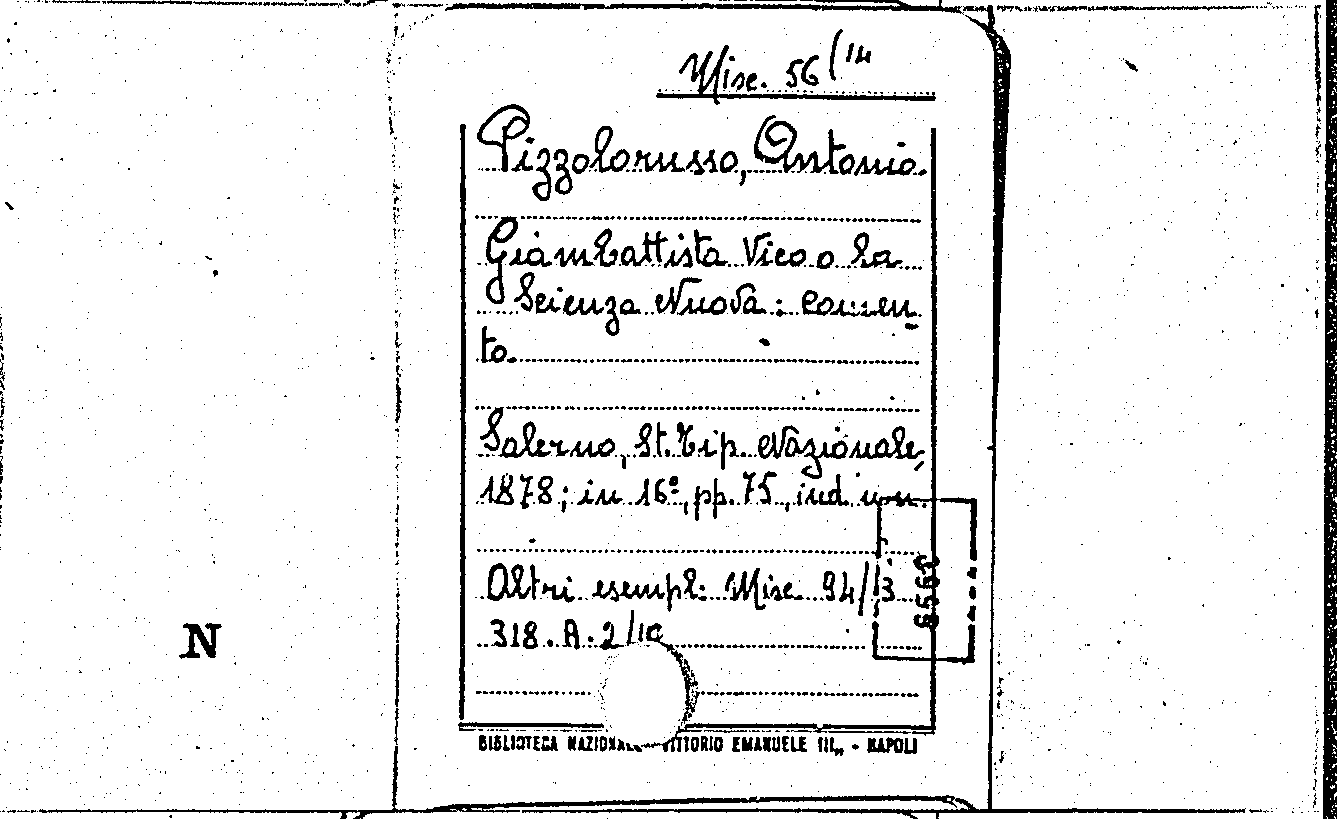 Misc. 56/14
Pizzolorusso, Antonio.
Giambattista Vico o la
Scienza Nuova: commen
to.
Salerno, St. Tip. Nazionale,
1878; in 16°, pp. 75, ind. non.
Altri esempl: Misc. 94/3
8568
318. A. 2/10
N
BIBLIOTECA NAZIONALE VITTORIO EMANUELE III„ - NAPOLI